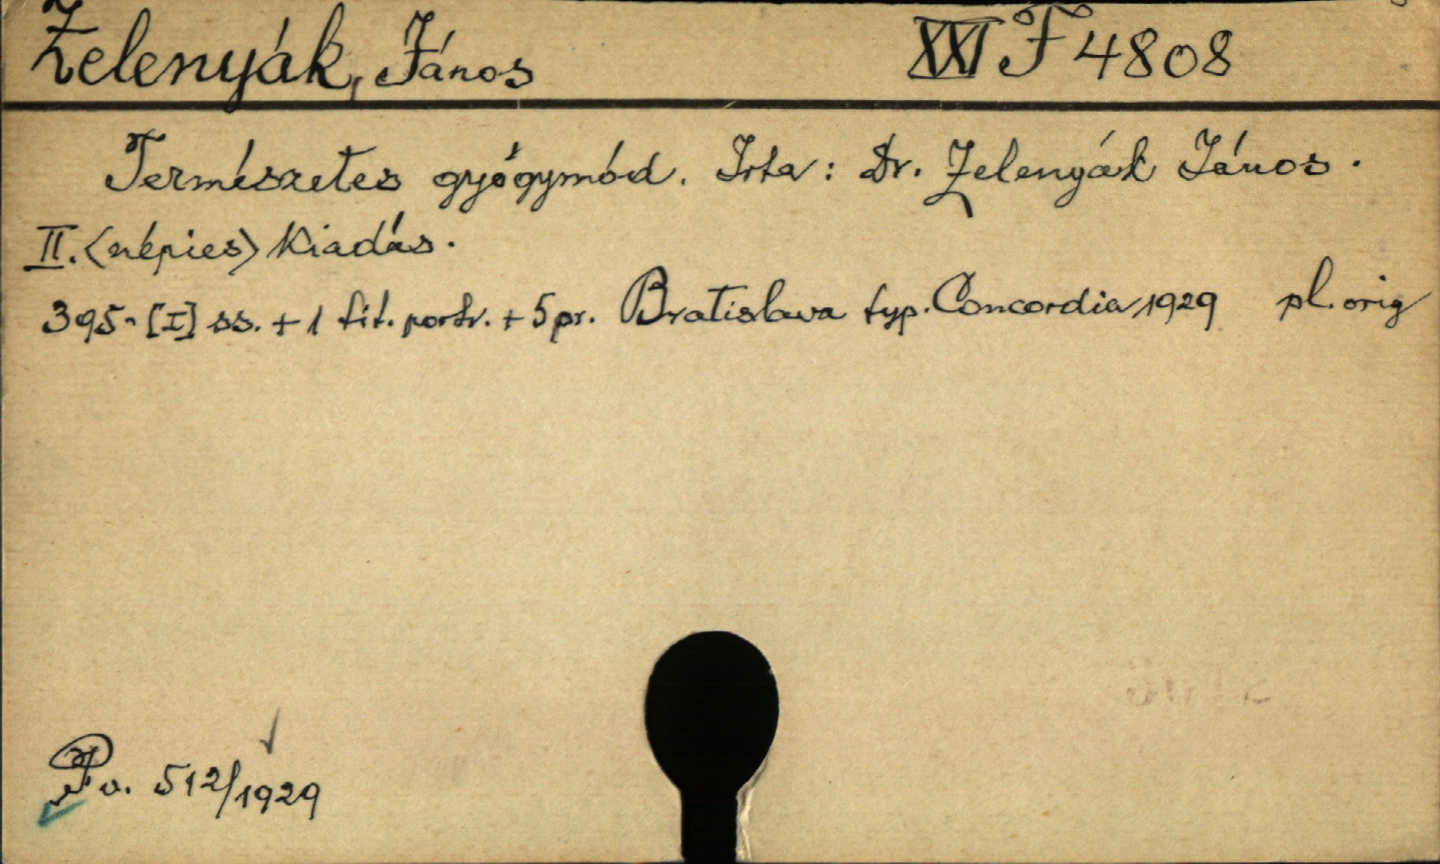 Zelenyák, János XXI F 4808
Természetes gyógymód. Irta: Dr. Zelenyák János.
II. <népies> kiadás.
395-[I] ss. + 1 tit. portr. + 5 pr. Bratislava typ. Concordia 1929 pl. orig
Pv. 512/1929